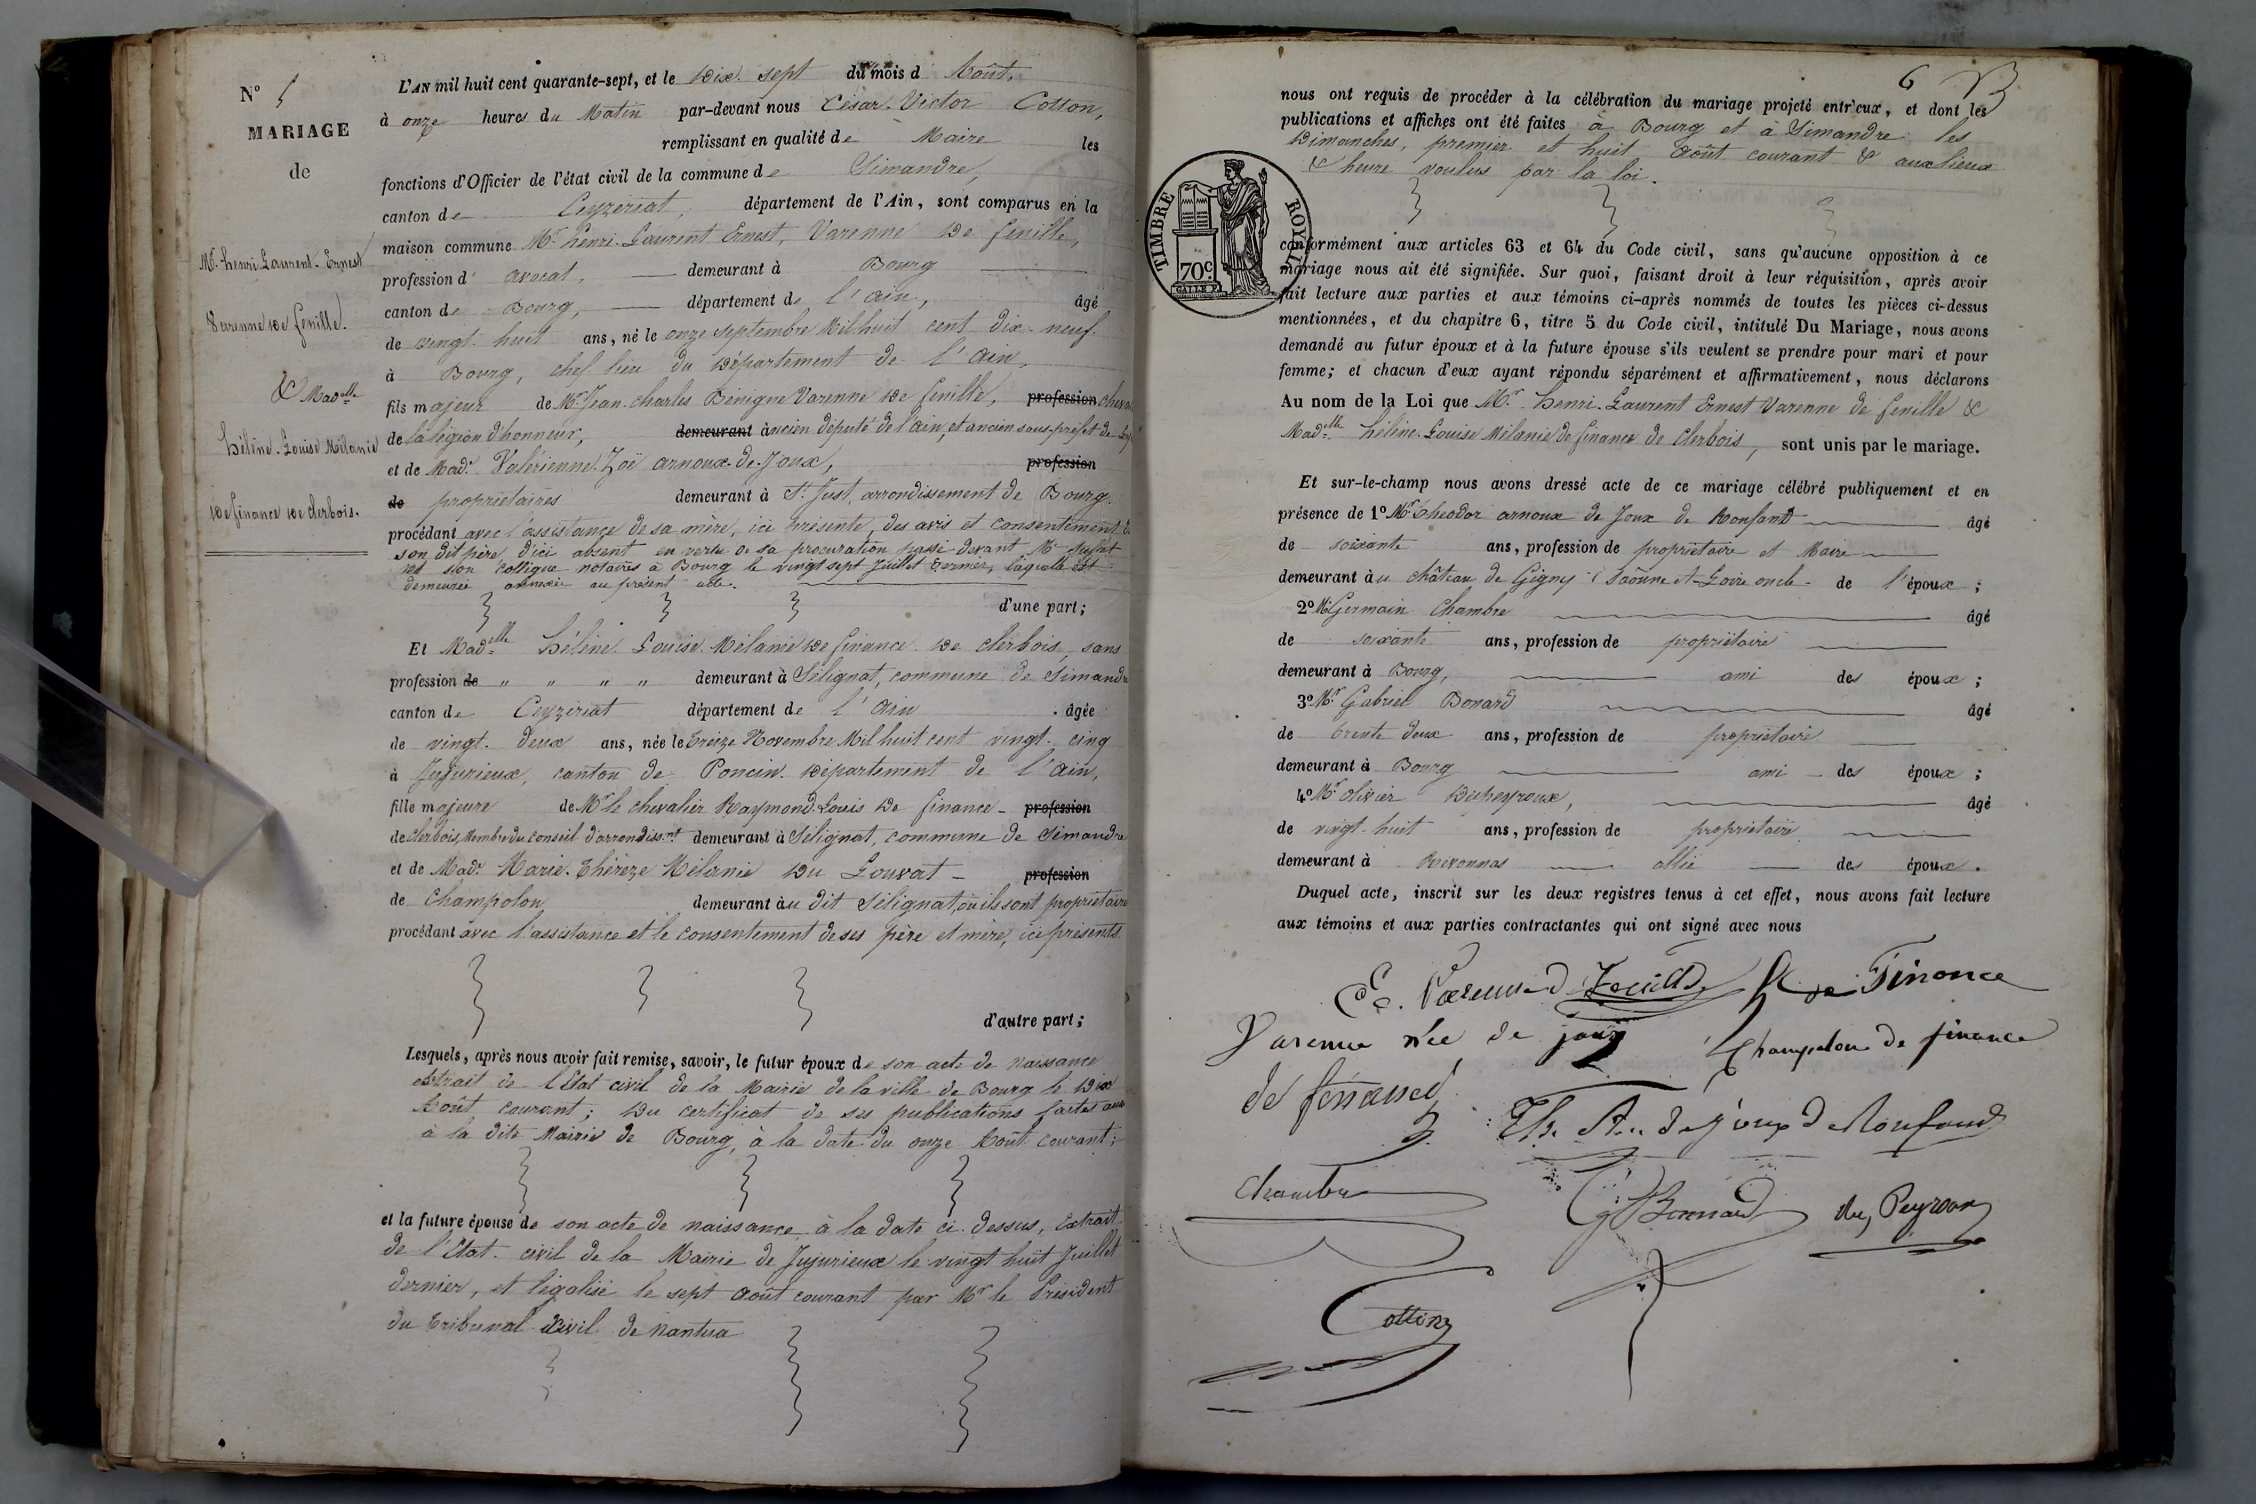 N° 5
MARIAGE
de
Mr. henri-Laurent-Ernest
Varenne de fenille.
& Madelle
hélène-Louise Mélanie
De finance de clerbois.
L'AN mil huit cent quarante-sept, et le Dix sept du mois d Août,
à onze heures du Matin par-devant nous César-Victor Cotton,
remplissant en qualité de Maire les
fonctions d'Officier de l'état civil de la commune de Simandre,
canton de Ceyzériat, département de l'Ain, sont comparus en la
maison commune Mr. henri-Laurent Ernest, Varenne De fenille,
profession d' avocat, demeurant à Bourg
canton de Bourg, département de l'ain, âgé
de vingt-huit ans, né le onze septembre Mil huit cent dix-neuf
à Bourg, chef lieu du Département de l'ain,
fils majeur de Mr. Jean-charles Bénigne Varenne De fenille, profession cheval
de la légion d'honneur, demeurant ancien député de l'ain, et ancien sous-préfet de
et de Made. Valérienne-Zoë arnoux-de-Joux, profession
de propriétaires demeurant à St. Just, arrondissement de Bourg.
procédant avec l'assistance de sa mère, ici présente, des avis et consentement de
son dit père, d'ici absent en vertu de sa procuration passé devant Me
et son collègue notaires à Bourg le vingt sept Juillet dernier, laquelle est
demeurée annexée au présent acte.
d'une part;
Et Madelle hélène Louise Mélanie De finance De clerbois, sans
profession de " " " " demeurant à Sélignat, commune de Simandre
canton de Ceyzériat département de l'ain âgée
de vingt-deux ans, née le treize Novembre Mil huit cent vingt-cinq
à Jujurieux, canton de Poncin Département de l'ain,
fille majeure de Mr le chevalier Raymond-Louis De finance - profession
de clerbois, Membre du Conseil d'arrondissnt demeurant à Sélignat, commune de Simandre
et de Made. Marie-Thérèze Mélanie Du Louvat - profession
de Champolon demeurant au dit Sélignat, où ils sont propriétaires
procédant avec l'assistance et le consentement de ses père et mère, ici présents.
d'autre part;
Lesquels, après nous avoir fait remise, savoir, le futur époux de son acte de naissance
extrait de l'Etat civil de la Mairie de la ville de Bourg le Dix
Août courant; Du certificat de ses publications faites aussi
à la dite Mairie de Bourg, à la date du onze Août courant;
et la future épouse de son acte de naissance à la date ci-dessus, Extrait
de l'Etat-civil de la Mairie de Jujurieux le vingt huit Juillet
dernier, et légalisé le sept Août courant par Mr le Président
du tribunal civil de Nantua
6
nous ont requis de procéder à la célébration du mariage projeté entr'eux, et dont les
publications et affiches ont été faites à Bourg et à Simandre les
Dimanches, premier et huit Août courant & aux lieux
& heure voulus par la loi.
TIMBRE ROYAL
70c.
conformément aux articles 63 et 64 du Code civil, sans qu'aucune opposition à ce
mariage nous ait été signifiée. Sur quoi, faisant droit à leur réquisition, après avoir
fait lecture aux parties et aux témoins ci-après nommés de toutes les pièces ci-dessus
mentionnées, et du chapitre 6, titre 5 du Code civil, intitulé Du Mariage, nous avons
demandé au futur époux et à la future épouse s'ils veulent se prendre pour mari et pour
femme; et chacun d'eux ayant répondu séparément et affirmativement, nous déclarons
Au nom de la Loi que Mr. henri-Laurent Ernest Varenne de fenille &
Madelle hélène-Louise Mélanie de finance de clerbois, sont unis par le mariage.
Et sur-le-champ nous avons dressé acte de ce mariage célébré publiquement et en
présence de 1° Mr. théodor arnoux de Joux de Ronfand âgé
de soixante ans, profession de propriétaire et Maire
demeurant à u château de Gigny (Saône et Loire oncle de l'époux;
2° Mr Germain Chambre âgé
de soixante ans, profession de propriétaire
demeurant à Bourg, ami des époux;
3° Mr Gabriel Bonard âgé
de trente deux ans, profession de propriétaire
demeurant à Bourg ami des époux;
4° Mr olivier Dupeyroux, âgé
de vingt-huit ans, profession de propriétaire
demeurant à Revonnas allié des époux.
Duquel acte, inscrit sur les deux registres tenus à cet effet, nous avons fait lecture
aux témoins et aux parties contractantes qui ont signé avec nous
E. Varenne d Fenille H de Finance
Varenne née de joux Champolon de finance
de finance
Th. Ar. de Joux de Ronfand
Chambre G Bonnard du Peyroux
Cotton